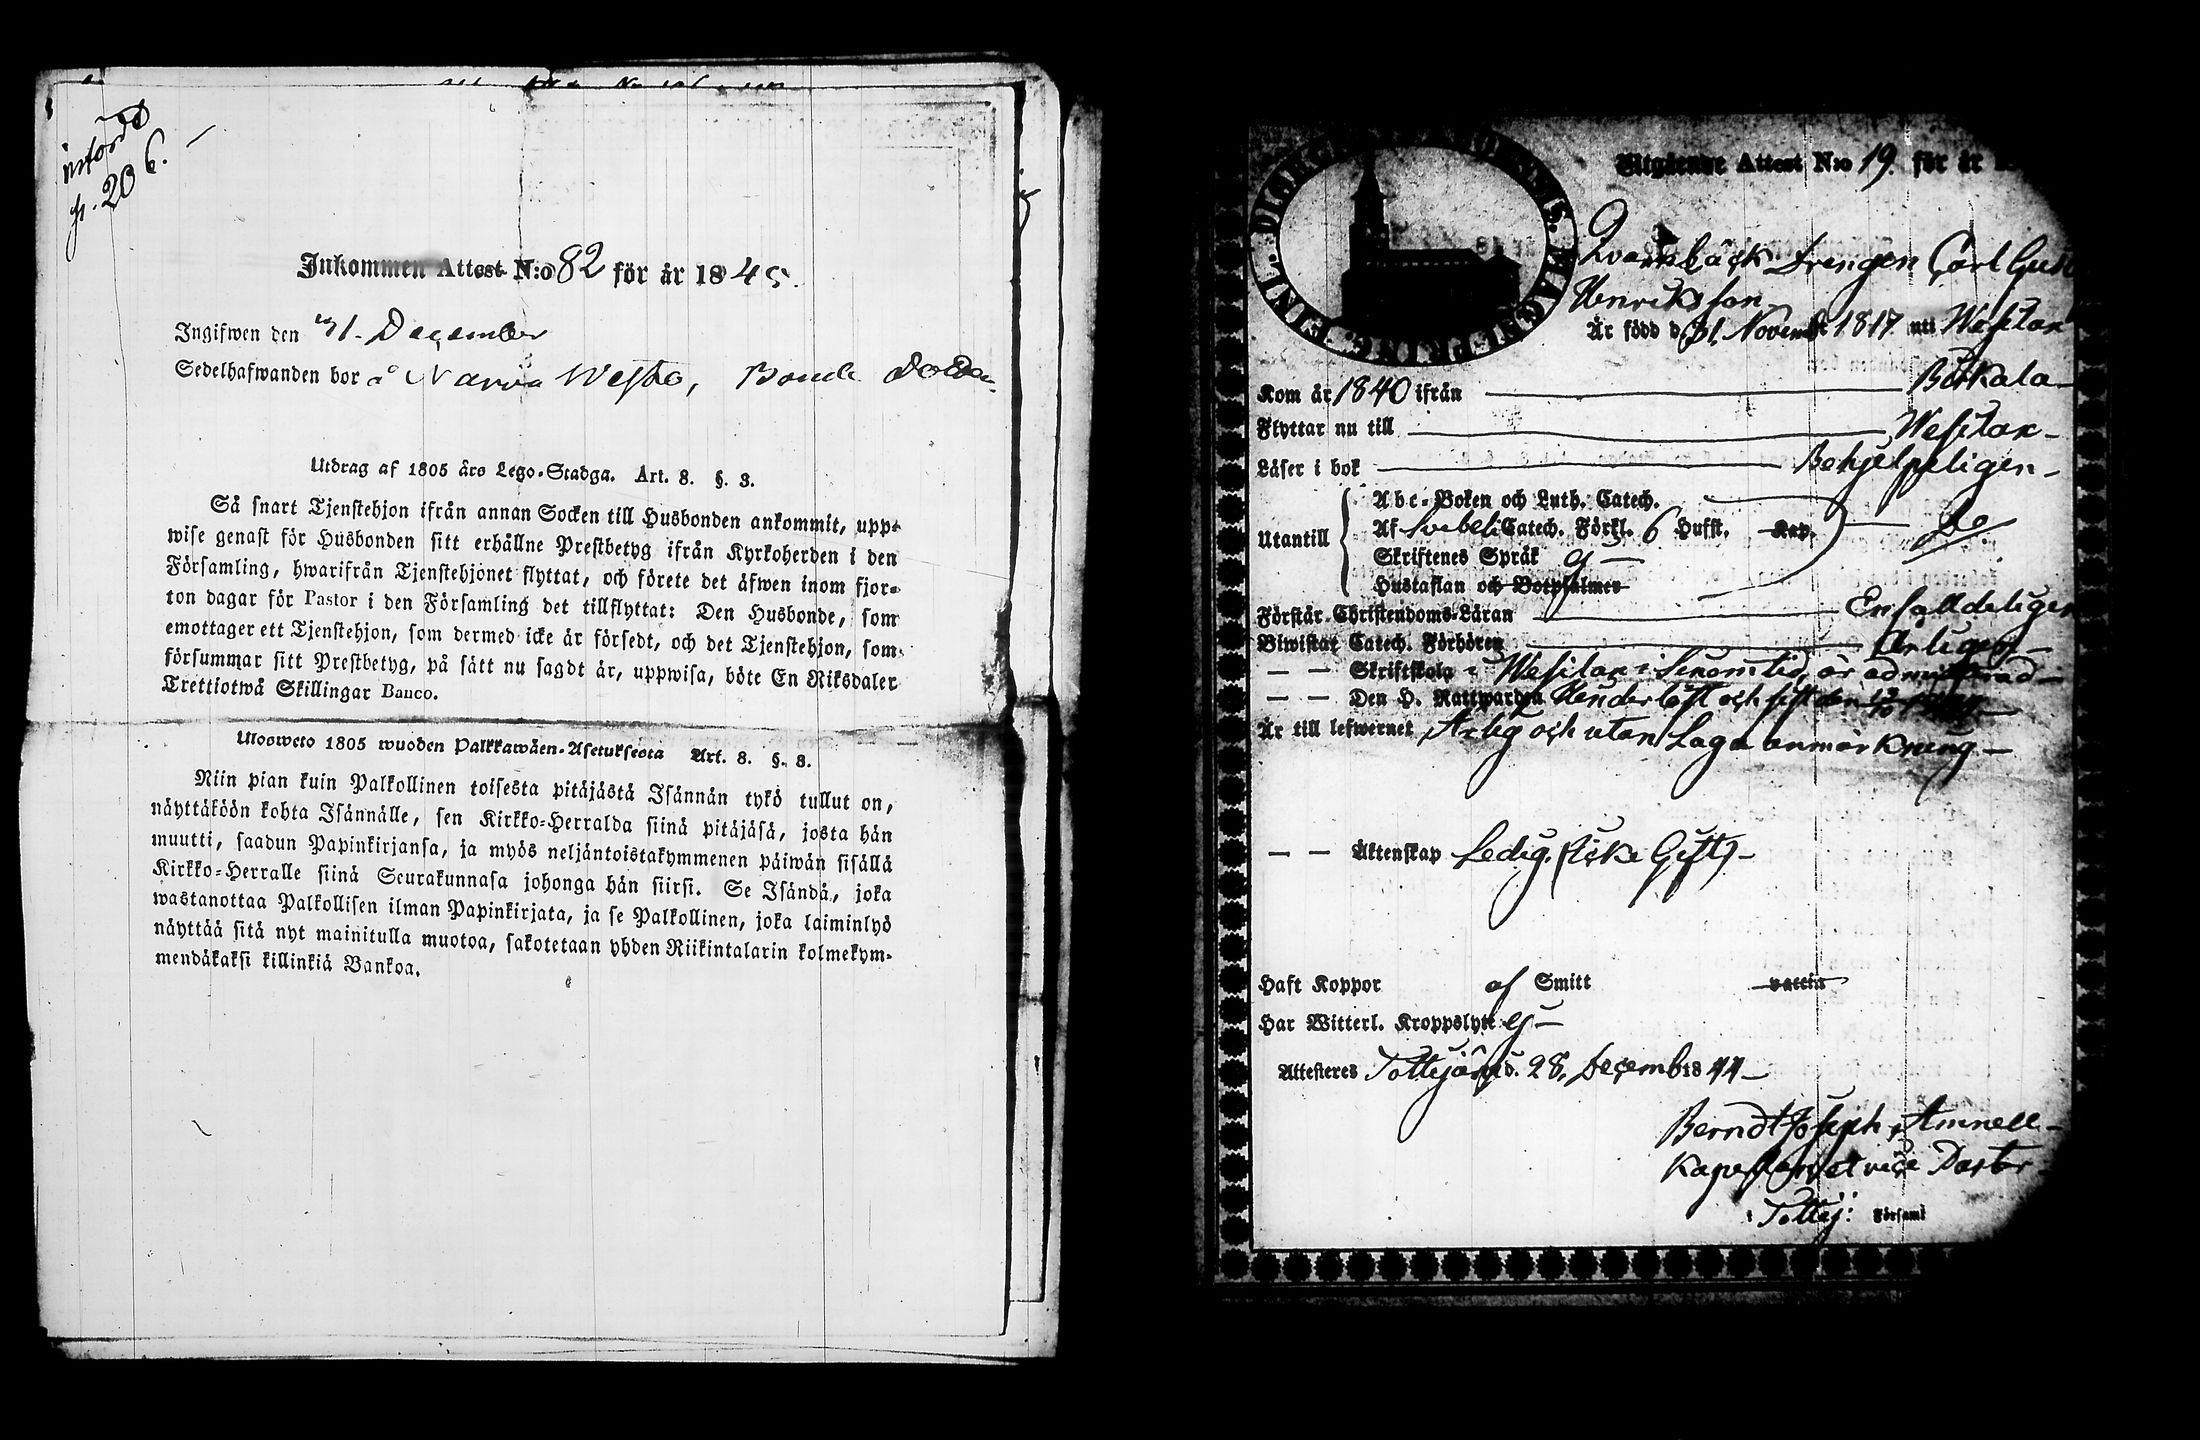 införd
p. 206.
Inkommen Attest N:o 82 för år 1845.
Ingifwen den 31. December
Sedelhafwanden bor å Narva Westo, Bonde
Utdrag af 1805 års Lego-Stadga. Art. 8. §. 3.
Så snart Tjenstehjon ifrån annan Socken till Husbonden ankommit, upp-
wise genast för Husbonden sitt erhållne Prestbetyg ifrån Kyrkoherden i den
Församling, hwarifrån Tjenstehjonet flyttat, och förete det äfwen inom fjor-
ton dagar för Pastor i den Församling det tillflyttat: Den Husbonde, som
emottager ett Tjenstehjon, som dermed icke är försedt, och det Tjenstehjon, som
försummar sitt Prestbetyg, på sätt nu sagdt är, uppwisa, böte En Riksdaler
Trettiotwå Skillingar Banco.
Ulosweto 1805 wuoden Palkkawäen-Asetuksesta Art. 8. §. 3.
Niin pian kuin Palkollinen toisesta pitäjästä Isännän tykö tullut on,
näyttäköön kohta Isännälle, sen Kirkko-Herralda siinä pitäjäsä, josta hän
muutti, saadun Papinkirjansa, ja myös neljäntoistakymmenen päiwän sisällä
Kirkko-Herralle siinä Seurakunnasa johonga hän siirsi. Se Isändä, joka
wastanottaa Palkollisen ilman Papinkirjata, ja se Palkollinen, joka laiminlyö
näyttää sitä nyt mainitulla muotoa, sakotetaan yhden Riikintalarin kolmekym-
mendäkaksi killinkiä Bankoa.
Utgående Attest N:o 19. för år
Qvarnbäck Drengen Carl Gust
Henriksson
Är född d 31. Novemb 1817 uti Wesilax
Kom år 1840 ifrån Birkala
Flyttar nu till Wesilax
Läser i bok Behjelpeligen
Abc-Boken och Luth. Catech.
Utantill Af Svebeli Catech. Förkl. 6 Hufst. Kap. Do
Skriftenes Språk ej
Hustaflan och Botpsalmer
Förstår Christendoms-Läran Enfalldeligen
Biwistat Catech. Förhören Årligen
— — Skriftskola i Wesilax i sinom tid, är admitterad
— — Den H. Nattwarden och sist den
Är till lefwernet Ärlig och utan Laga anmärkning
— — Äktenskap Ledig. (icke Gift)
Haft Koppor af Smitt vaccin
Har Witterl. Kroppslyte ej
Attesteres Tottijärvi d. 28. Decemb 1844
Berndt Joseph Amnell
Kapellan et vice Pastor
i Tottij: Församl